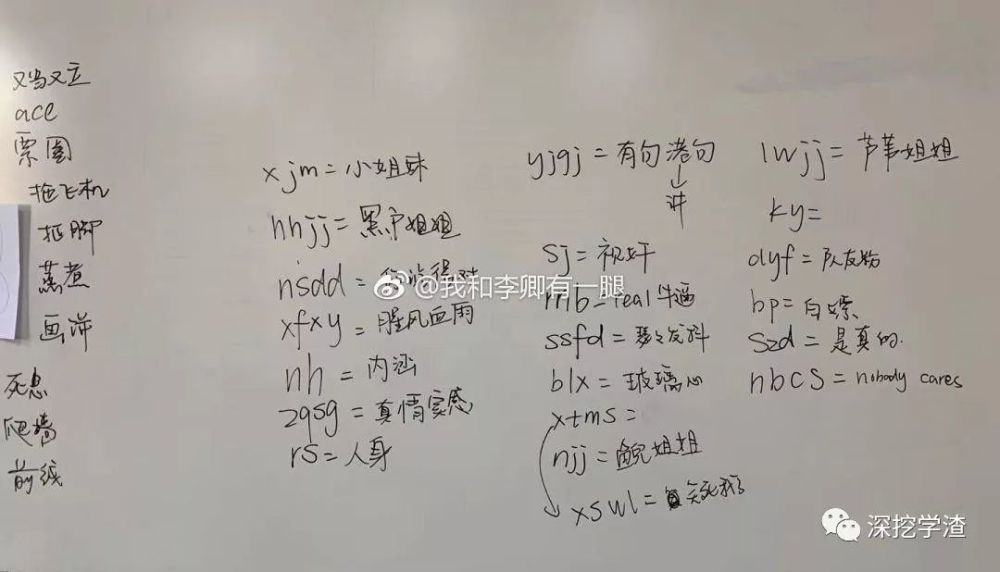 又鸟又立
ace
票圈
拖飞机
抠脚
蒸煮
画饼
死忠
爬墙
前线
xjm=小姐妹
hhjj=黑户姐姐
nsdd=你说得对
xfxy=腥风血雨
nh=内涵
zqsg=真情实感
rs=人身
yjgj=有句港句
讲
sj=视奸
rnb=real牛逼
ssfd=瑟瑟发抖
blx=玻璃心
xtms=
njj=鲵姐姐
xswl=笑死我了
lwjj=芦苇姐姐
ky=
dyf=队友粉
bp=白嫖
szd=是真的.
nbcs=nobody cares
@我和李卿有一腿
深挖学渣